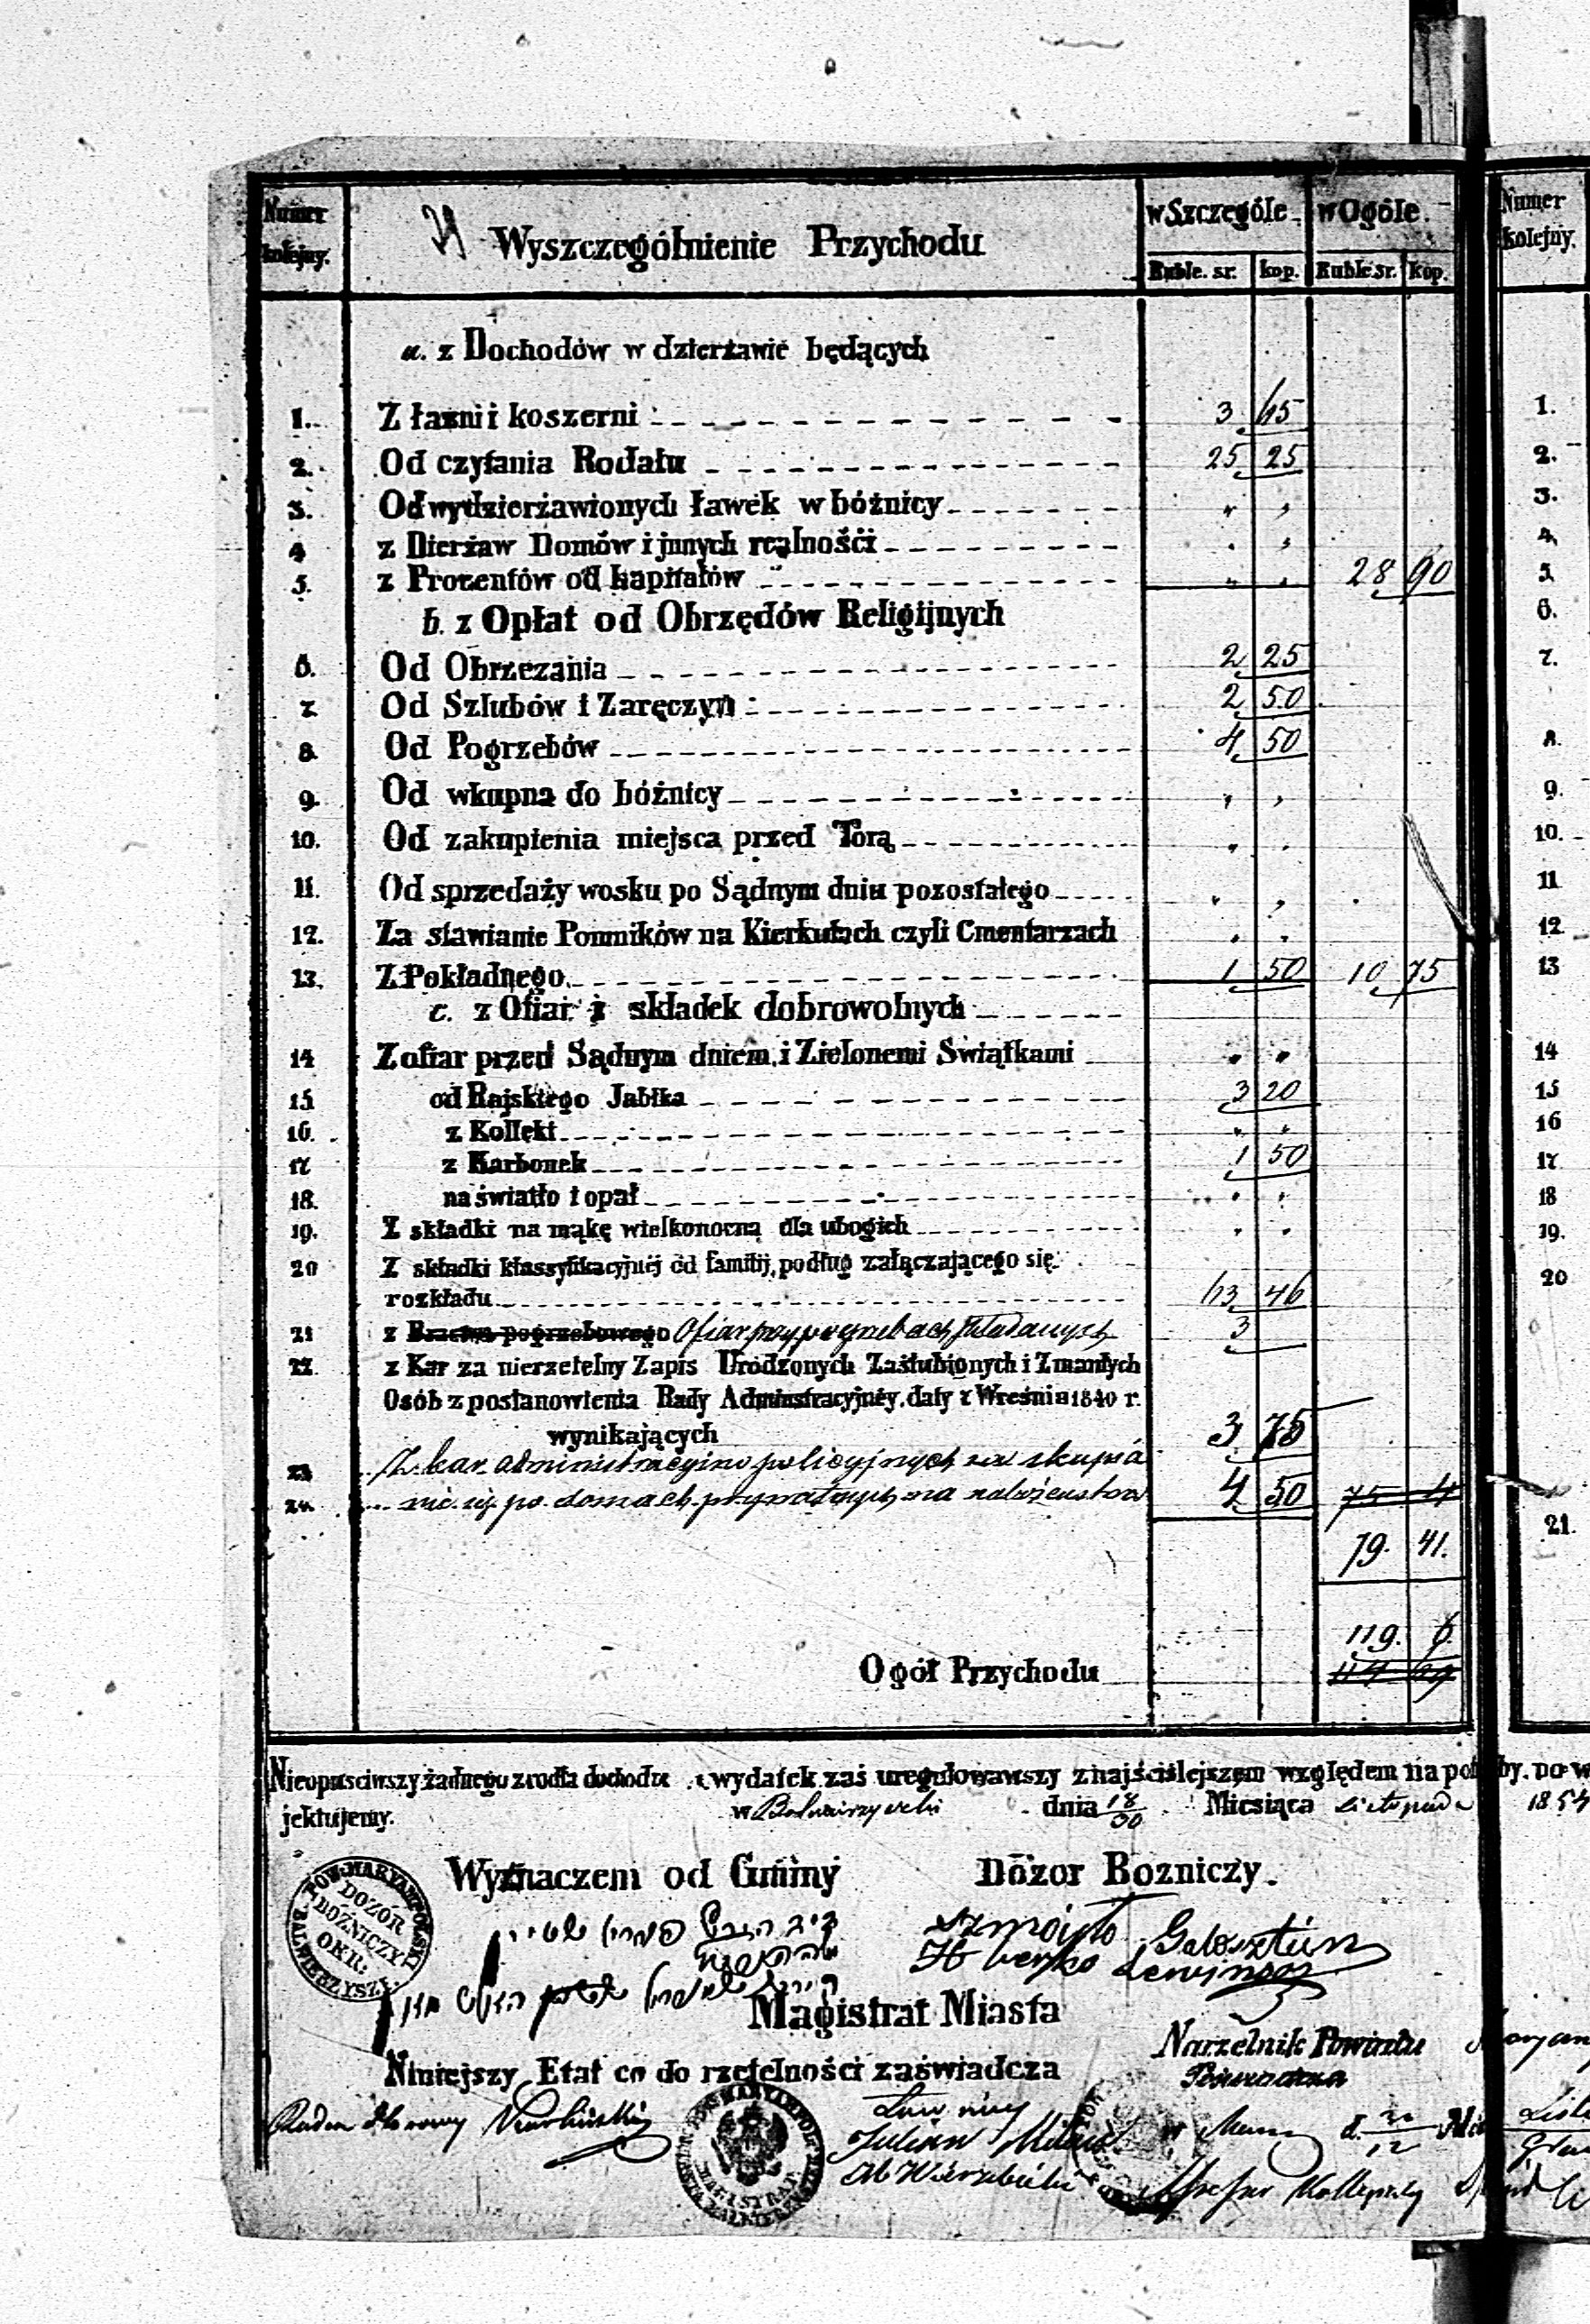 Numer kolejny.
Wyszczególnienie Przychodu
w Szczególe w Ogóle.
Ruble. sr. kop. Ruble sr. kop.
a. z Dochodów w dzierżawie będących
1. Z łaźni i koszerni 3 45
2. Od czytania Rodału 25 25
3. Od wydzierżawionych ławek w bóżnicy " "
4 z Dierżaw Domów i jnnych realnośći " "
5. z Procentów od kapitałów " " 28 90
b. z Opłat od Obrzędów Religijnych
6. Od Obrzezania 2 25
7 Od Szlubów i Zaręczyn 2 50
8. Od Pogrzebów 4 50
9. Od wkupna do bóżnicy " "
10. Od zakupienia miejsca przed Torą " "
11. Od sprzedaży wosku po Sądnym dniu pozostałego " "
12. Za stawianie Pomników na Kierkutach czyli Cmentarzach " "
13. Z Pokładnego 1 50 10 75
c. z Ofiar i składek dobrowolnych
14 Z ofiar przed Sądnym dniem i Zielonemi Swiątkami " "
15 od Rajskiego Jabłka 3 20
16. z Kollęki " "
17 z Karbonek 1 50
18. na światło i opał " "
19. Z składki na mąkę wielkonocną dla ubogich " "
20 Z składki klassyfikacyjnéj od familij, podług załączającego się
rozkładu 63 46
21 z Bractwa pogrzebowego Ofiar przy pogrzebach składanych 3
22. z Kar za nierzetelny Zapis Urodzonych Zaślubionych i Zmarłych
Osób z postanowienia Rady Administracyjnéy daty 1 Wreśnia 1840 r.
wynikających 3 75
23 Z kar administracyino policyjnych za skupia
24. nie się po domach prywatnych na nabożeństwa 4 50 75 4
79. 41.
119. 6.
Ogół Przychodu
Nieopuściwszy żadnego zrodła dochodu i wydatek zaś uregulowawszy z najściślejszem względem na potrzeby. po w
jektujemy. w Balwierzyszki dnia 18/30 Miesiąca Listopada 1854
Wyznaczeni od Gminy Dózor Bozniczy.
POW. MARYAMPOLSKI
DOZÓR
BOŹNICZY
OKR:
BALWIERZYSZ.
Szmojło Golosztein
Magistrat Miasta
Niniejszy Etat co do rzetelności zaświadcza
Naczelnik Powiatu
Ławnicy
Julian
Numer kolejny.
1.
2.
3.
4.
5.
6.
7.
8.
9.
10.
11
12
13
14
15
16
17
18
19.
20
21.